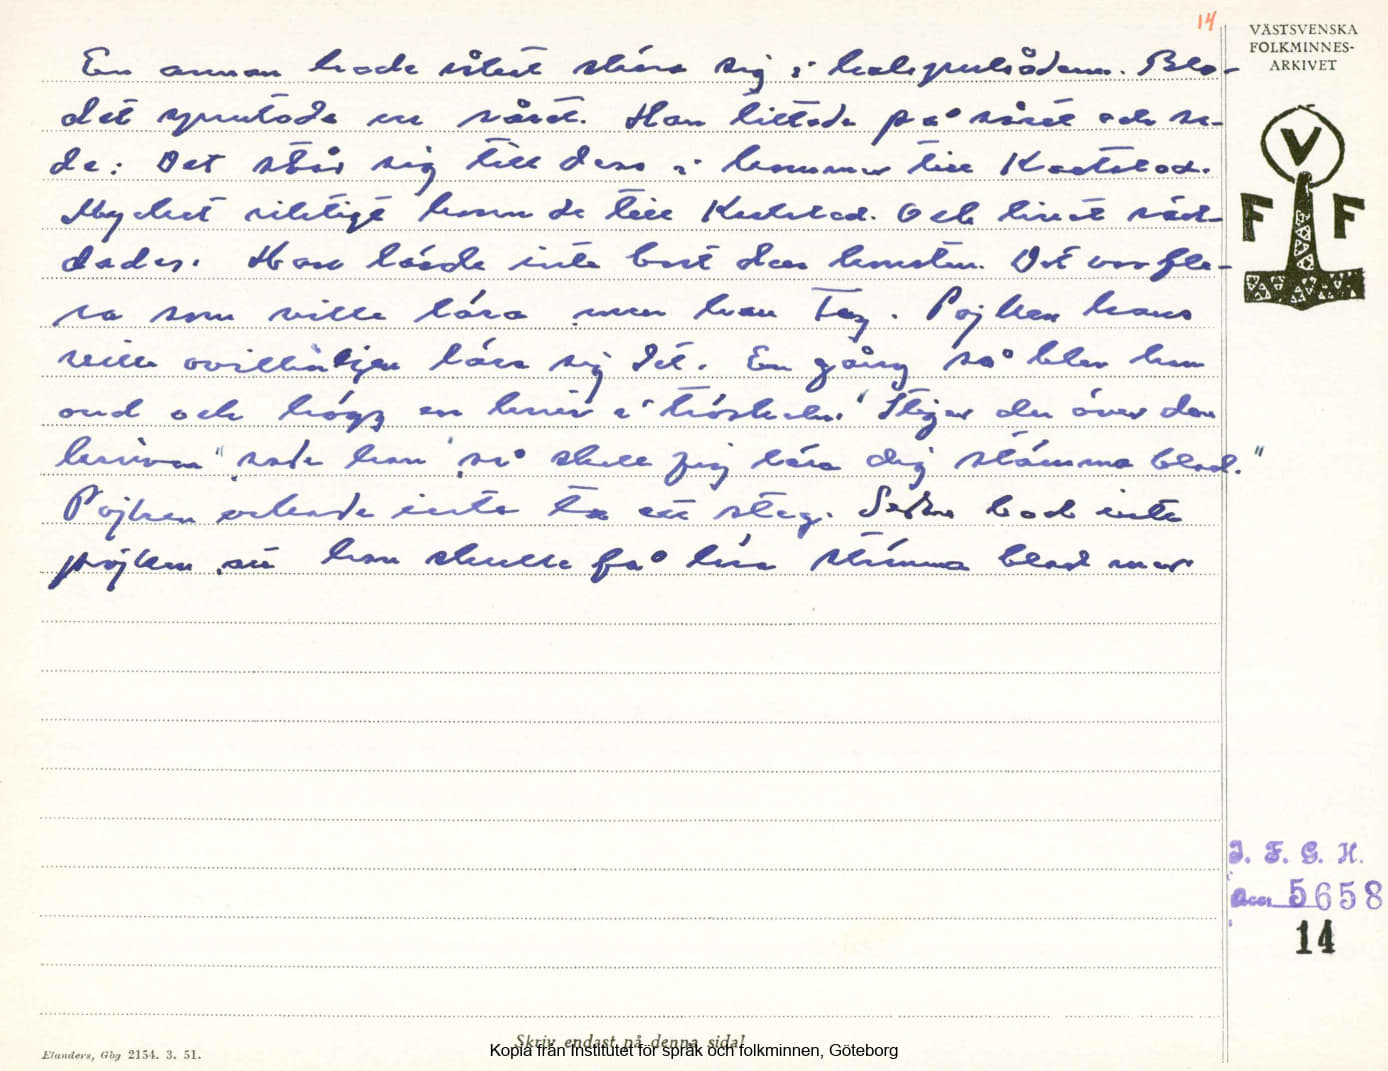 14
VÄSTSVENSKA
FOLKMINNES-
ARKIVET
En annan hade råkat skära sig i halspulsådern. Blo-
det sprutade ur såret. Han tittade på såret och sa-
de: Det står sig till dess i kommer till Karlstad.
Mycket riktigt kom de till Karlstad. Och livet räd-
dades. Han lärde inte bort den konsten. Det var fle-
ra som ville lära men han teg. Pojken hans
ville ovillkorligen lära sig det. En gång så blev han
ond och högg en kniv i tröskeln. "Stiger du över den
kniven" sade han "så skall jag lära dig stämma blod."
Pojken vågade inte ta ett steg. Sedan bad inte
pojken att han skulle få lära stämma blod mer.
V
F F
I. F. G. H.
Acc. 5658
14
Skriv endast på denna sida!
Elanders, Gbg 2154. 3. 51.
Kopia från Institutet för språk och folkminnen, Göteborg